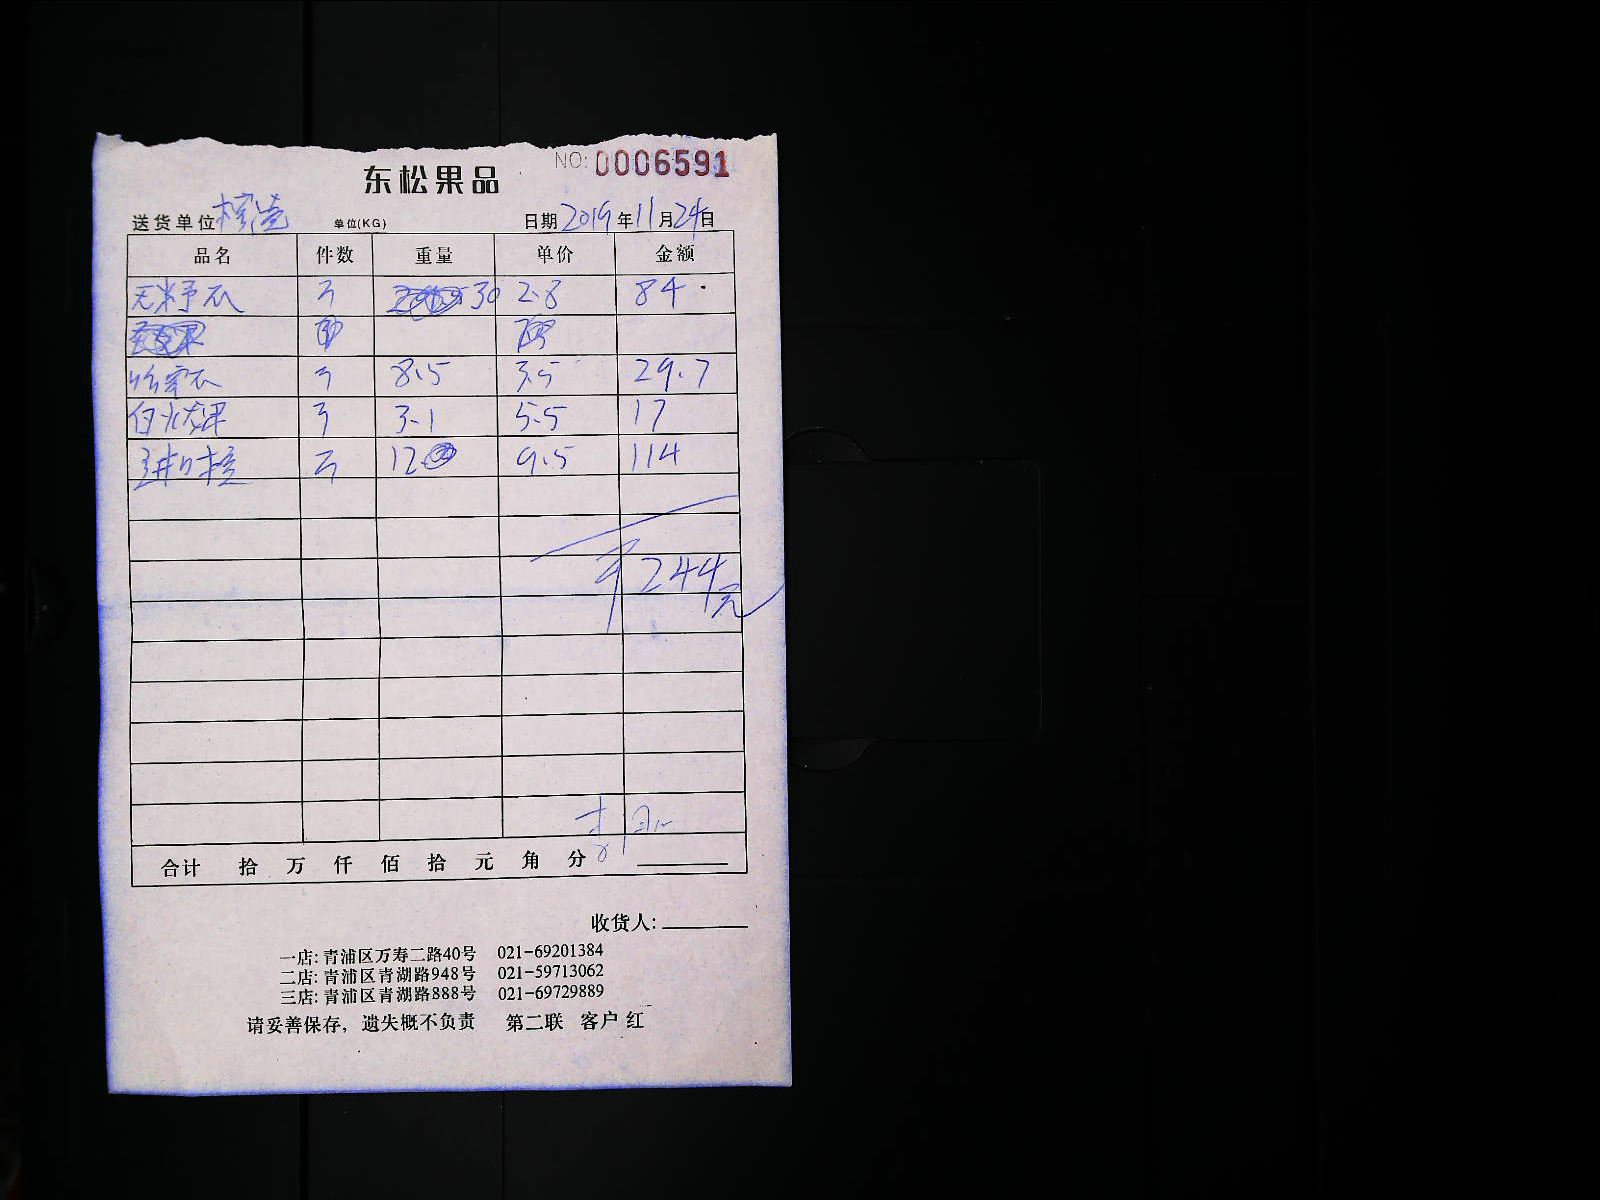 NO: 0006591
东松果品
送货单位 单位(KG) 日期 2019 年 11 月 24 日
品名 件数 重量 单价 金额
30 2.8 84.
8.5 3.5 29.7
3.1 5.5 17
12 9.5 114
244元
合计 拾 万 仟 佰 拾 元 角 分
收货人:
一店: 青浦区万寿二路40号 021-69201384
二店: 青浦区青湖路948号 021-59713062
三店: 青浦区青湖路888号 021-69729889
请妥善保存, 遗失概不负责 第二联 客户 红